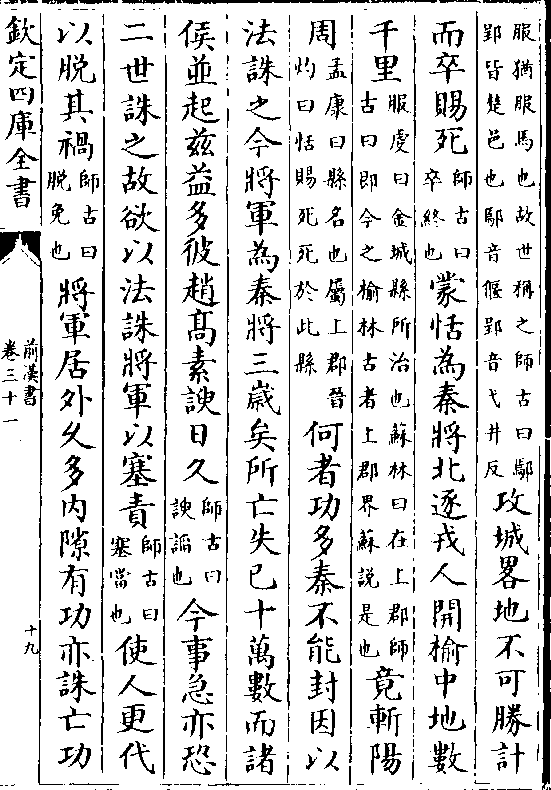 服猶服馬也故世稱之師古曰鄢郢皆楚邑也鄢音偃郢音弋井反攻城畧地不可勝計
而卒賜死師古曰卒終也蒙恬為秦將北逐戎人開榆中地數
千里服虔曰金城縣所治也蘇林曰在上郡師古曰即今之榆林古者上郡界蘇說是也竟斬陽
周孟康曰縣名也屬上郡晉灼曰恬賜死死於此縣何者功多秦不能封因以
法誅之今將軍為秦將三嵗矣所亡失已十萬數而諸
侯並起兹益多彼趙髙素諛日久師古曰諛謟也今事急亦恐
二世誅之故欲以法誅將軍以塞責師古曰塞當也使人更代
以脱其禍師古曰脱免也將軍居外久多内隙有功亦誅亡功
欽定四庫全書
前漢書
卷三十一
十九